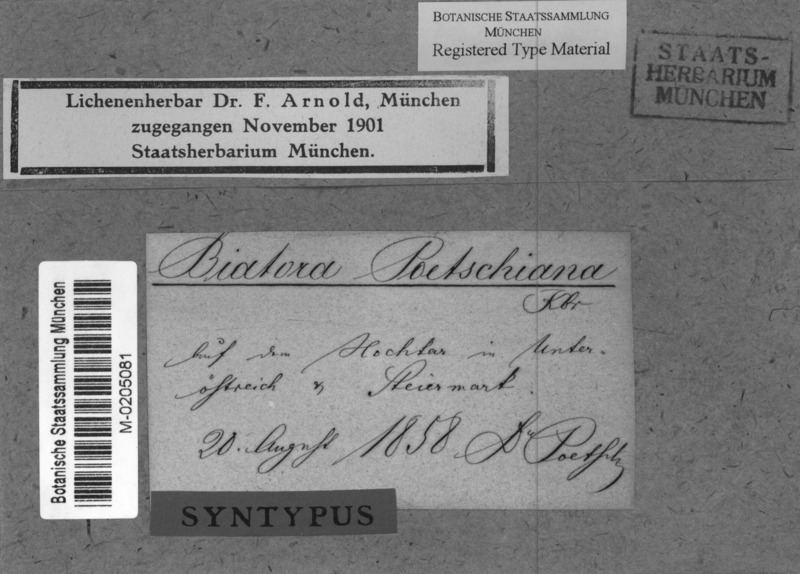 BOTANISCHE STAATSSAMMLUNG
MÜNCHEN
Registered Type Material
STAATS-
HERBARIUM
MÜNCHEN
Lichenenherbar Dr. F. Arnold, München
zugegangen November 1901
Staatsherbarium München.
Biatora Poetschiana
Kbr
Auf dem Hochkar in Unter-
östreich & Steiermark.
20. August 1858 Dr Poetsch
SYNTYPUS
Botanische Staatssammlung München
M-0205081